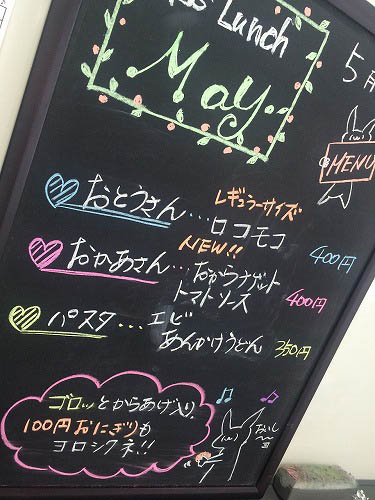 Lunch
May
5月
MENU
レギュラーサイズ
おとうさん…ロコモコ 400円
NEW!!
おかあさん…おからナゲット
トマトソース 400円
パスタ…エビ
あんかけうどん 350円
ゴロッとからあげ入り
100円おにぎりも
ヨロシクネ!!
おいし〜